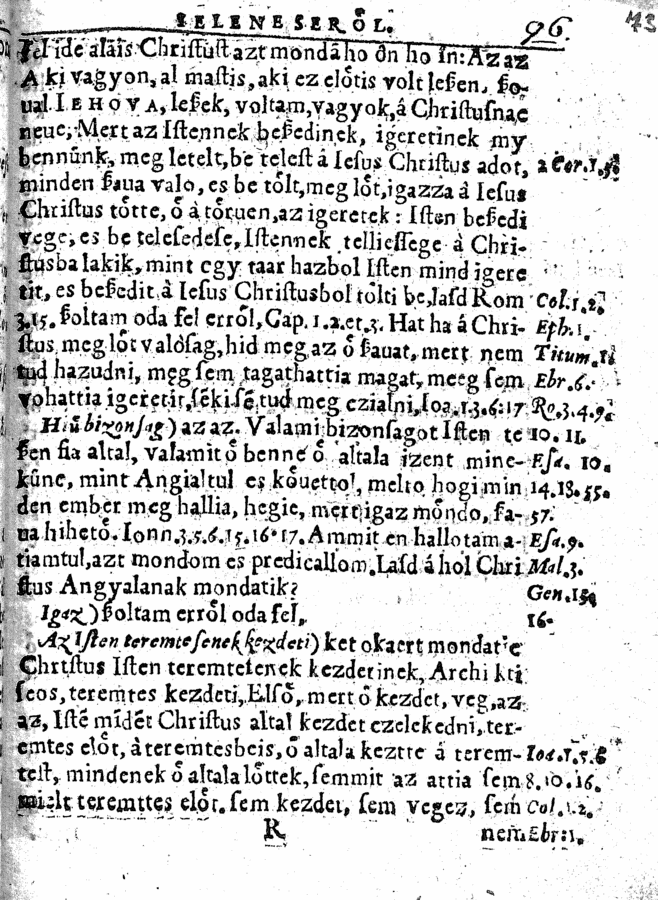 IELENESEROͤL. 96. 43
fel ide alais Chriſtuſt azt mondāho ōn ho īn: Az az
A ki vagyon, al maſtis, aki ez elo̊tis volt leßen, ßo-
ual IEHOVA, leßek, voltam, vagyok, á Chriſtuſnac
neue, Mert az Iſtennek beßedinek, igeretinek my
bennůnk, meg letelt, be teleſt á Ieſus Chriſtus adot, 2 Cor. 1.
minden ßaua valo, es be to̊lt, meg lo̊t, igazza á Ieſus
Chriſtus to̊tte, o̊ à to̊ruen, az igeretek: Iſten beßedi
vege, es be teleſedeſe, Iſtennek tellieſſege à Chri-
ſtusba lakik, mint egy taar hazbol Iſten mind igere
tit, es beßedit à Ieſus Chriſtusbol to̊lti be, laſd Rom Col. 1. 2.
3. 15. ßoltam oda fel erro̊l, Cap. 1. 2. et. 3. Hat ha á Chri- Eph. 1.
ſtus meg lo̊t valoſag, hid meg az o̊ ßauat, mert nem Titum. 1.
tud hazudni, meg ſem tagathattia magat, meeg ſem Ebr. 6.
vohattia igeretit, ſēki ſē tud meg czialni, Ioa. 13. 6: 17 Ro. 3. 4. 9.
Hiů bizonſag) az az. Valami bizonſagot Iſten te 10. 11.
ßen fia altal, valamit o̊ benne o̊ altala izent mine- Eſa. 10.
kůnc, mint Angialtul es ko̊uetto̊l, melto hogi min 14. 18. 55.
den ember meg hallia, hegie, mert igaz mo̊ndo, fa- 57.
ua hiheto̊. Ionn. 3. 5. 6. 15. 16. 17. Ammit en hallotam a- Eſa. 9.
tiamtul, azt mondom es predicallom. Laſd á hol Chri Mal. 3.
ſtus Angyalanak mondatik? Gen. 15
Igaz) ßoltam erro̊l oda fel, 16.
Az Iſten teremteſenek kezdeti) ket okaert mondatic
Chrtſtus Iſten teremteſenek kezdetinek, Archi kti
ſeos, teremtes kezdeti, Elſo̊, mert o̊ kezdet, veg, az
az, Iſtē mīdēt Chriſtus altal kezdet czelekedni, ter-
emtes elo̊t, à teremtesbeis, o̊ altala keztte á terem- Ioa. 1. 5. 6
teſt, mindenek o̊ altala lo̊ttek, ſemmit az attia ſem 8. 10. 16.
mielt teremttes elo̊t. ſem kezdet, ſem vegez, ſem Col. 1. 2.
R nem Ebr: 1.